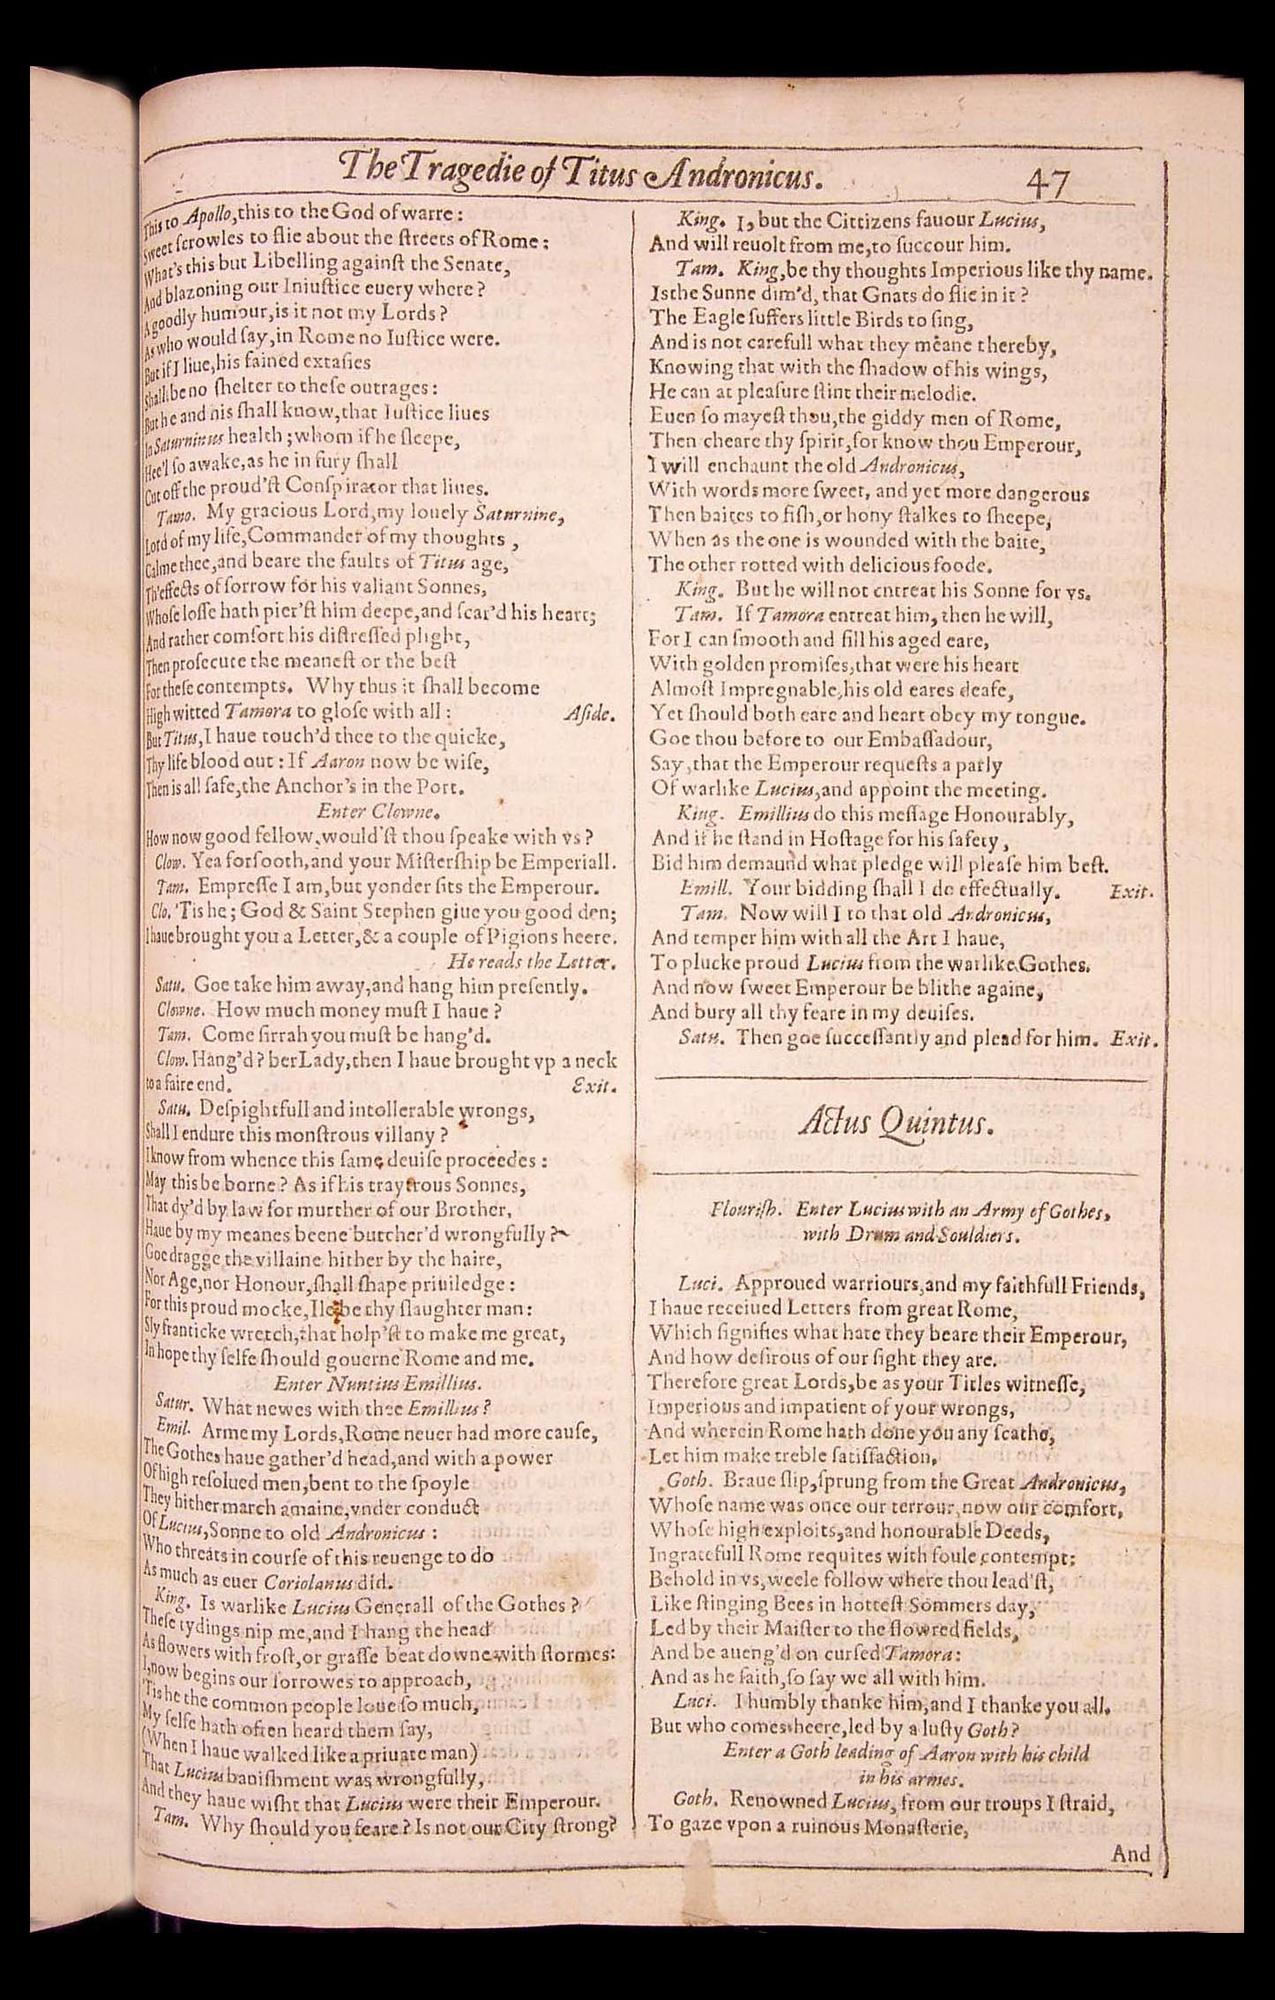 The Tragedie of Titus Andronicus. 47
This to Apollo, this to the God of warre:
Sweet ſcrowles to flie about the ſtreets of Rome:
What's this but Libelling againſt the Senate,
And blazoning our Iniuſtice euery where?
A goodly humour, is it not my Lords?
As who would ſay, in Rome no Iuſtice were.
But if I liue, his fained extaſies
Shall be no ſhelter to theſe outrages:
But he and his ſhall know, that Iuſtice liues
In Saturninus health; whom if he ſleepe,
Hee'l ſo awake, as he in fury ſhall
Cut off the proud'ſt Conſpirator that liues.
Tamo. My gracious Lord, my louely Saturnine,
Lord of my life, Commander of my thoughts,
Calme thee, and beare the faults of Titus age,
Th'effects of ſorrow for his valiant Sonnes,
Whoſe loſſe hath pier'ſt him deepe, and ſcar'd his heart;
And rather comfort his diſtreſſed plight,
Then proſecute the meaneſt or the beſt
For theſe contempts. Why thus it ſhall become
High witted Tamora to gloſe with all: Aſide.
But Titus, I haue touch'd thee to the quicke,
Thy life blood out: If Aaron now be wiſe,
Then is all ſafe, the Anchor's in the Port.
Enter Clowne.
How now good fellow, would'ſt thou ſpeake with vs?
Clow. Yea forſooth, and your Miſterſhip be Emperiall.
Tam. Empreſſe I am, but yonder ſits the Emperour.
Clo. 'Tis he; God & Saint Stephen giue you good den;
I haue brought you a Letter, & a couple of Pigions heere.
He reads the Letter.
Satu. Goe take him away, and hang him preſently.
Clowne. How much money muſt I haue?
Tam. Come ſirrah you muſt be hang'd.
Clow. Hang'd? ber Lady, then I haue brought vp a neck
to a faire end. Exit.
Satu. Deſpightfull and intollerable wrongs,
Shall I endure this monſtrous villany?
I know from whence this ſame deuiſe proceedes:
May this be borne? As if his traytrous Sonnes,
That dy'd by law for murther of our Brother,
Haue by my meanes beene butcher'd wrongfully?
Goe dragge the villaine hither by the haire,
Nor Age, nor Honour, ſhall ſhape priuiledge:
For this proud mocke, Ile be thy ſlaughter man:
Sly franticke wretch, that holp'ſt to make me great,
In hope thy ſelfe ſhould gouerne Rome and me.
Enter Nuntius Emillius.
Satur. What newes with thee Emillius?
Emil. Arme my Lords, Rome neuer had more cauſe,
The Gothes haue gather'd head, and with a power
Of high reſolued men, bent to the ſpoyle
They hither march amaine, vnder conduct
Of Lucius, Sonne to old Andronicus:
Who threats in courſe of this reuenge to do
As much as euer Coriolanus did.
King. Is warlike Lucius Generall of the Gothes?
Theſe tydings nip me, and I hang the head
As flowers with froſt, or graſſe beat downe with ſtormes:
I, now begins our ſorrowes to approach,
'Tis he the common people loue ſo much,
My ſelfe hath often heard them ſay,
(When I haue walked like a priuate man)
That Lucius baniſhment was wrongfully,
And they haue wiſht that Lucius were their Emperour.
Tam. Why ſhould you feare? Is not our City ſtrong?
King. I, but the Cittizens fauour Lucius,
And will reuolt from me, to ſuccour him.
Tam. King, be thy thoughts Imperious like thy name.
Is the Sunne dim'd, that Gnats do flie in it?
The Eagle ſuffers little Birds to ſing,
And is not carefull what they meane thereby,
Knowing that with the ſhadow of his wings,
He can at pleaſure ſtint their melodie.
Euen ſo mayeſt thou, the giddy men of Rome,
Then cheare thy ſpirit, for know thou Emperour,
I will enchaunt the old Andronicus,
With words more ſweet, and yet more dangerous
Then baites to fiſh, or hony ſtalkes to ſheepe,
When as the one is wounded with the baite,
The other rotted with delicious foode.
King. But he will not entreat his Sonne for vs.
Tam. If Tamora entreat him, then he will,
For I can ſmooth and fill his aged eare,
With golden promiſes, that were his heart
Almoſt Impregnable, his old eares deafe,
Yet ſhould both eare and heart obey my tongue.
Goe thou before to our Embaſſadour,
Say, that the Emperour requeſts a parly
Of warlike Lucius, and appoint the meeting.
King. Emillius do this meſſage Honourably,
And if he ſtand in Hoſtage for his ſafety,
Bid him demaund what pledge will pleaſe him beſt.
Emill. Your bidding ſhall I do effectually. Exit.
Tam. Now will I to that old Andronicus,
And temper him with all the Art I haue,
To plucke proud Lucius from the warlike Gothes.
And now ſweet Emperour be blithe againe,
And bury all thy feare in my deuiſes.
Satu. Then goe ſucceſſantly and plead for him. Exit.
Actus Quintus.
Flouriſh. Enter Lucius with an Army of Gothes,
with Drum and Souldiers.
Luci. Approued warriours, and my faithfull Friends,
I haue receiued Letters from great Rome,
Which ſignifies what hate they beare their Emperour,
And how deſirous of our ſight they are.
Therefore great Lords, be as your Titles witneſſe,
Imperious and impatient of your wrongs,
And wherein Rome hath done you any ſcathe,
Let him make treble ſatiſfaction.
Goth. Braue ſlip, ſprung from the Great Andronicus,
Whoſe name was once our terrour, now our comfort,
Whoſe high exploits, and honourable Deeds,
Ingratefull Rome requites with foule contempt:
Behold in vs, weele follow where thou lead'ſt,
Like ſtinging Bees in hotteſt Sommers day,
Led by their Maiſter to the flowred fields,
And be aueng'd on curſed Tamora:
And as he ſaith, ſo ſay we all with him.
Luci. I humbly thanke him, and I thanke you all.
But who comes heere, led by a luſty Goth?
Enter a Goth leading of Aaron with his child
in his armes.
Goth. Renowned Lucius, from our troups I ſtraid,
To gaze vpon a ruinous Monaſterie,
And